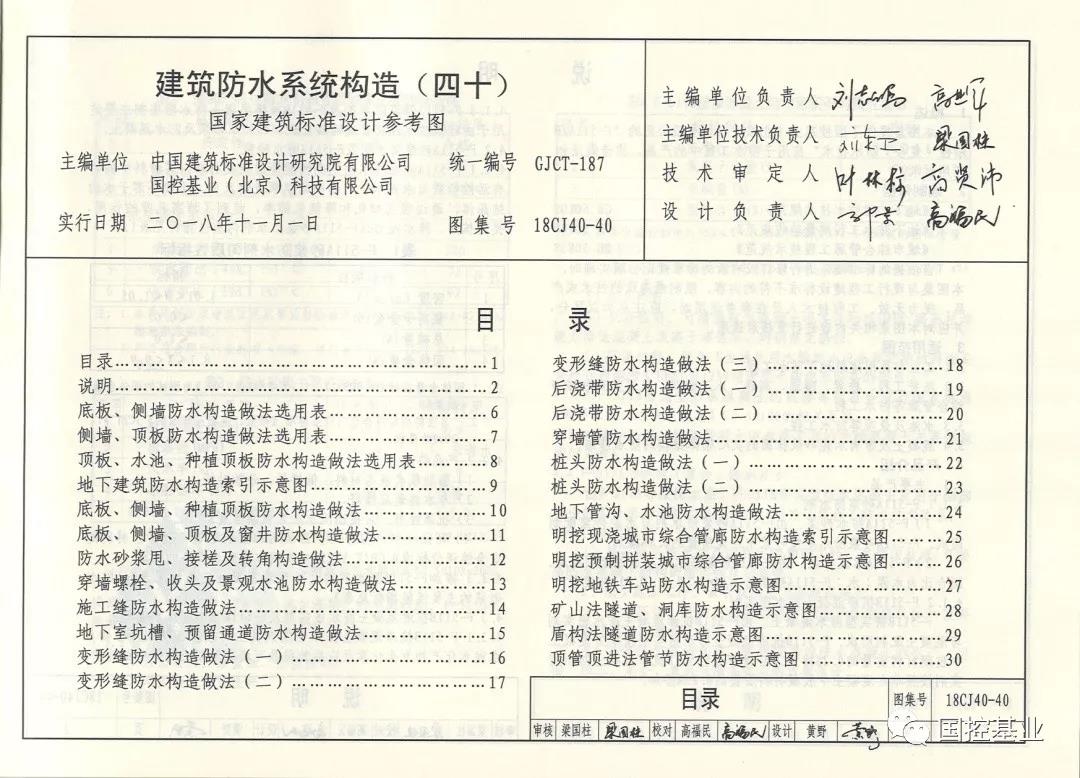 建筑防水系统构造（四十）
国家建筑标准设计参考图
主编单位 中国建筑标准设计研究院有限公司 统一编号 GJCT-187
国控基业（北京）科技有限公司
实行日期 二〇一八年十一月一日 图集号 18CJ40-40
主编单位负责人
主编单位技术负责人 梁国柱
技术审定人 叶林标
设计负责人 高福民
目录
目录……1
说明……2
底板、侧墙防水构造做法选用表……6
侧墙、顶板防水构造做法选用表……7
顶板、水池、种植顶板防水构造做法选用表……8
地下建筑防水构造索引示意图……9
底板、侧墙、种植顶板防水构造做法……10
底板、侧墙、顶板及窗井防水构造做法……11
防水砂浆甩、接槎及转角构造做法……12
穿墙螺栓、收头及景观水池防水构造做法……13
施工缝防水构造做法……14
地下室坑槽、预留通道防水构造做法……15
变形缝防水构造做法（一）……16
变形缝防水构造做法（二）……17
变形缝防水构造做法（三）……18
后浇带防水构造做法（一）……19
后浇带防水构造做法（二）……20
穿墙管防水构造做法……21
桩头防水构造做法（一）……22
桩头防水构造做法（二）……23
地下管沟、水池防水构造做法……24
明挖现浇城市综合管廊防水构造索引示意图……25
明挖预制拼装城市综合管廊防水构造示意图……26
明挖地铁车站防水构造示意图……27
矿山法隧道、洞库防水构造示意图……28
盾构法隧道防水构造示意图……29
顶管顶进法管节防水构造示意图……30
目录 图集号 18CJ40-40
审核 梁国柱 梁国柱 校对 高福民 高福民 设计 黄野 黄野
国控基业